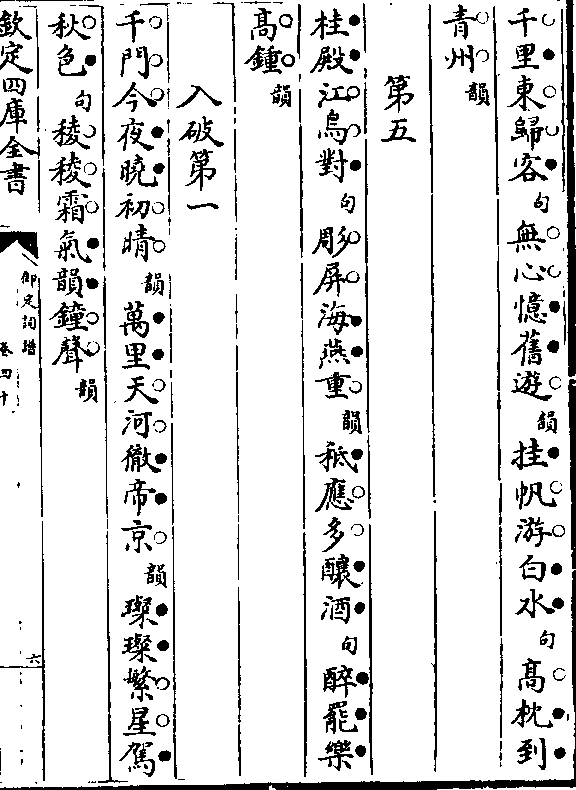 千里東歸客句無心憶舊遊韻挂帆游白水句髙枕到
青州韻
第五
桂殿江烏對句彫屏海燕重韻秪應多釀酒句醉罷樂
髙鍾韻
入破第一
千門今夜曉初晴韻萬里天河徹帝京韻璨璨繁星駕
秋色句稜稜霜氣韻鐘聲韻
欽定四庫全書
御定詞譜
卷四十
六